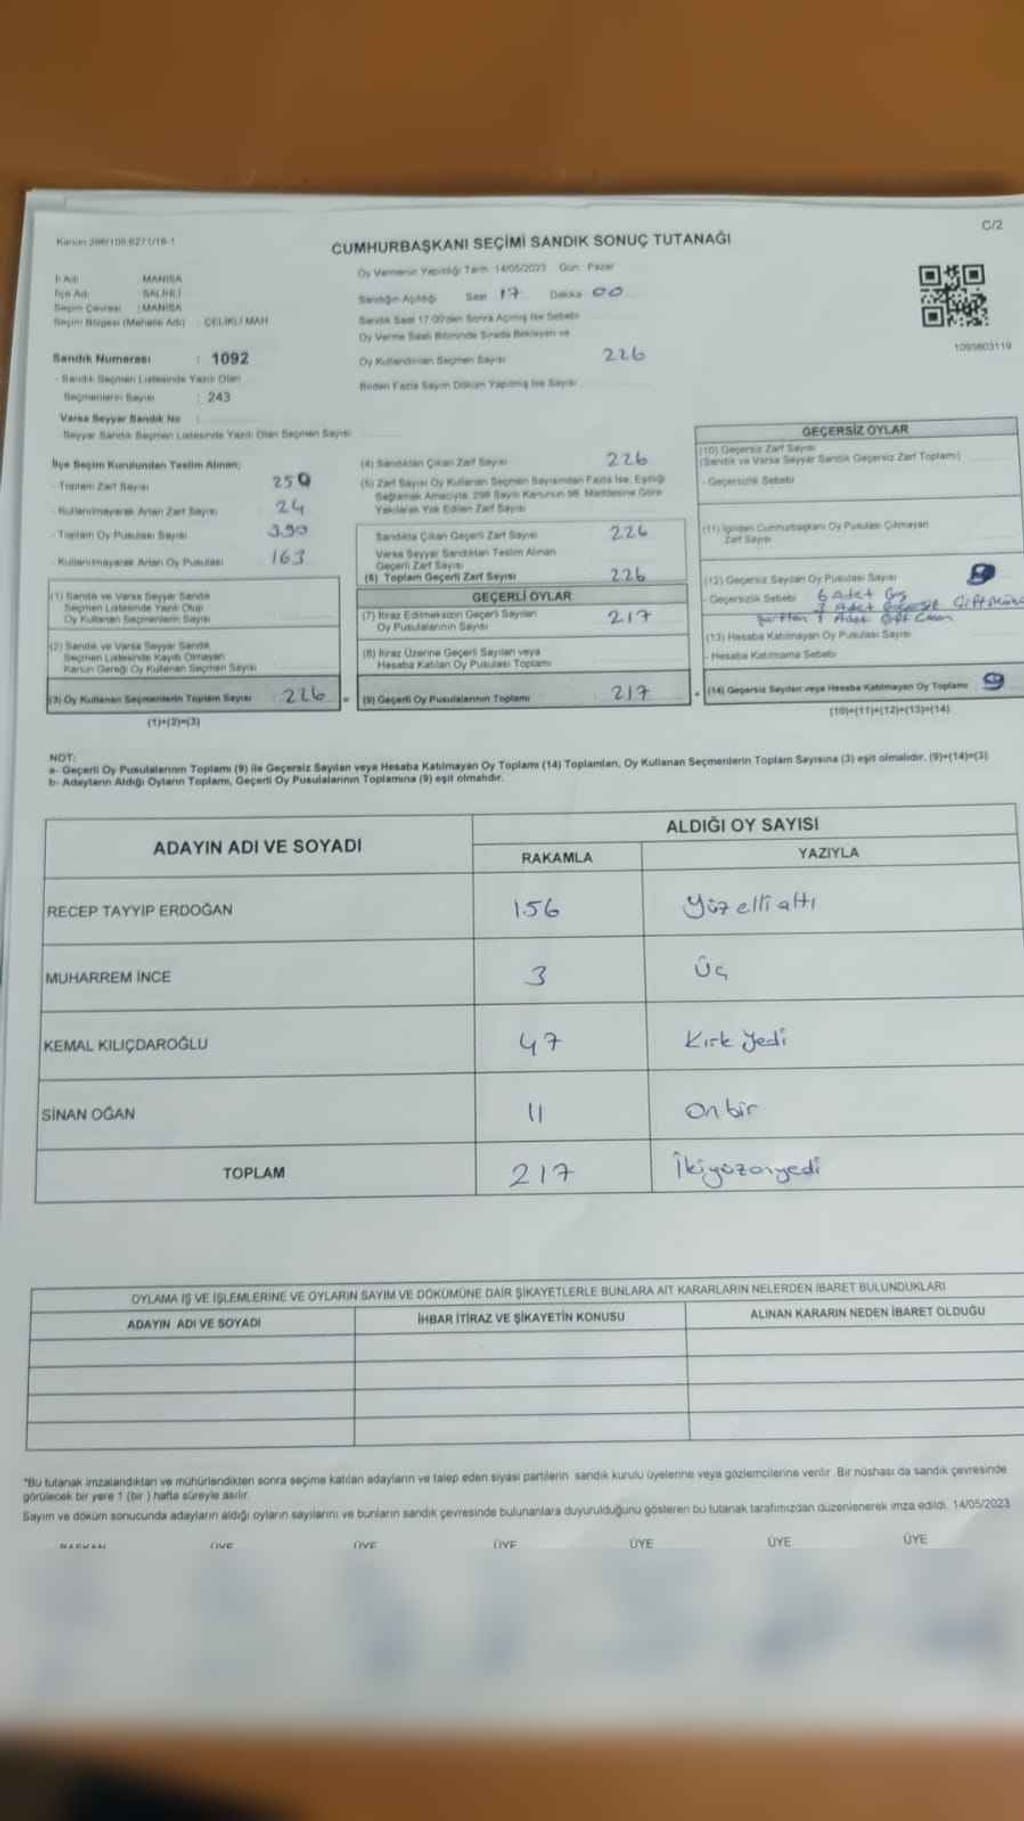 C/2
CUMHURBAŞKANI SEÇİMİ SANDIK SONUÇ TUTANAĞI
Oy Vermenin Yapıldığı Tarih: 14/05/2023 Gün: Pazar
İl Adı MANİSA
İlçe Adı SALİHLİ
Seçim Çevresi : MANİSA
Seçim Bölgesi (Mahalle Adı) : ÇELİKLİ MAH
Sandığın Açıldığı Saat 17 Dakika 00
Sandık Saat 17.00'den Sonra Açılmış İse Sebebi
Oy Verme Saati Bitiminde Sırada Bekleyen ve
Oy Kullandırılan Seçmen Sayısı 226
Birden Fazla Sayım Döküm Yapılmış İse Sayısı
1095803119
Sandık Numarası : 1092
- Sandık Seçmen Listesinde Yazılı Olan
Seçmenlerin Sayısı : 243
Varsa Seyyar Sandık No :
- Seyyar Sandık Seçmen Listesinde Yazılı Olan Seçmen Sayısı
İlçe Seçim Kurulundan Teslim Alınan;
- Toplam Zarf Sayısı 250
- Kullanılmayarak Artan Zarf Sayısı 24
- Toplam Oy Pusulası Sayısı 390
- Kullanılmayarak Artan Oy Pusulası 163
(1) Sandık ve Varsa Seyyar Sandık
Seçmen Listesinde Yazılı Olup
Oy Kullanan Seçmenlerin Sayısı
(2) Sandık ve Varsa Seyyar Sandık
Seçmen Listesinde Kayıtlı Olmayan
Kanun Gereği Oy Kullanan Seçmen Sayısı
(3) Oy Kullanan Seçmenlerin Toplam Sayısı 226
(1)+(2)=(3)
(4) Sandıktan Çıkan Zarf Sayısı 226
(5) Zarf Sayısı Oy Kullanan Seçmen Sayısından Fazla İse, Eşitliği
Sağlamak Amacıyla, 298 Sayılı Kanunun 98. Maddesine Göre
Yakılarak Yok Edilen Zarf Sayısı
Sandıkta Çıkan Geçerli Zarf Sayısı 226
Varsa Seyyar Sandıktan Teslim Alınan
Geçerli Zarf Sayısı
(6) Toplam Geçerli Zarf Sayısı 226
GEÇERLİ OYLAR
(7) İtiraz Edilmeksizin Geçerli Sayılan
Oy Pusulalarının Sayısı 217
(8) İtiraz Üzerine Geçerli Sayılan veya
Hesaba Katılan Oy Pusulası Toplamı
= (9) Geçerli Oy Pusulalarının Toplamı 217
GEÇERSİZ OYLAR
(10) Geçersiz Zarf Sayısı
(Sandık ve Varsa Seyyar Sandık Geçersiz Zarf Toplamı)
- Geçersizlik Sebebi
(11) İçinden Cumhurbaşkanı Oy Pusulası Çıkmayan
Zarf Sayısı
(12) Geçersiz Sayılan Oy Pusulası Sayısı 9
- Geçersizlik Sebebi 6 Adet
(13) Hesaba Katılmayan Oy Pusulası Sayısı
- Hesaba Katılmama Sebebi
+ (14) Geçersiz Sayılan veya Hesaba Katılmayan Oy Toplamı 9
(10)+(11)+(12)+(13)=(14)
NOT:
a- Geçerli Oy Pusulalarının Toplamı (9) ile Geçersiz Sayılan veya Hesaba Katılmayan Oy Toplamı (14) Toplamları, Oy Kullanan Seçmenlerin Toplam Sayısına (3) eşit olmalıdır. (9)+(14)=(3)
b- Adayların Aldığı Oyların Toplamı, Geçerli Oy Pusulalarının Toplamına (9) eşit olmalıdır.
ADAYIN ADI VE SOYADI ALDIĞI OY SAYISI
RAKAMLA YAZIYLA
RECEP TAYYİP ERDOĞAN 156 Yüz elli altı
MUHARREM İNCE 3 Üç
KEMAL KILIÇDAROĞLU 47 Kırk Yedi
SİNAN OĞAN 11 On bir
TOPLAM 217 İkiyüzonyedi
OYLAMA İŞ VE İŞLEMLERİNE VE OYLARIN SAYIM VE DÖKÜMÜNE DAİR ŞİKAYETLERLE BUNLARA AİT KARARLARIN NELERDEN İBARET BULUNDUKLARI
ADAYIN ADI VE SOYADI İHBAR İTİRAZ VE ŞİKAYETİN KONUSU ALINAN KARARIN NEDEN İBARET OLDUĞU
*Bu tutanak imzalandıktan ve mühürlendikten sonra seçime katılan adayların ve talep eden siyasi partilerin sandık kurulu üyelerine veya gözlemcilerine verilir. Bir nüshası da sandık çevresinde
görülecek bir yere 1 (bir) hafta süreyle asılır.
Sayım ve döküm sonucunda adayların aldığı oyların sayılarını ve bunların sandık çevresinde bulunanlara duyurulduğunu gösteren bu tutanak tarafımızdan düzenlenerek imza edildi. 14/05/2023
BAŞKAN ÜYE ÜYE ÜYE ÜYE ÜYE ÜYE